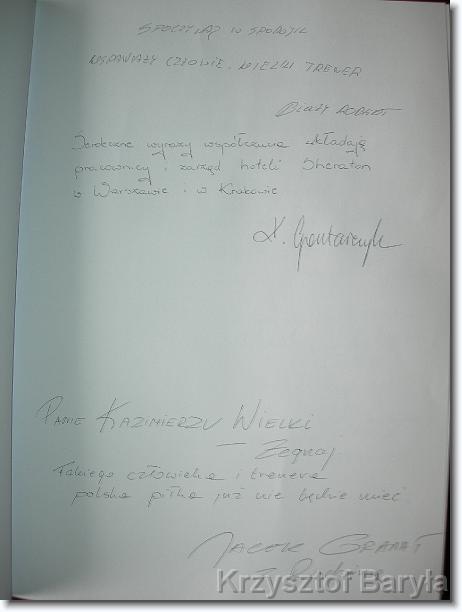 SPOCZYWAJ W SPOKOJU
WSPANIAŁY CZŁOWIE. WIELKI TRENER
ROBERT
Serdeczne wyrazy współczucia składają
pracownicy i zarząd hoteli Sheraton
w Warszawie i w Krakowie
K. Gontarczyk
PANIE KAZIMIERZU WIELKI
— Żegnaj
Takiego człowieka i trenera
polska piłka już nie będzie mieć
JACEK GRAMAT
z Rodziną
Krzysztof Baryła